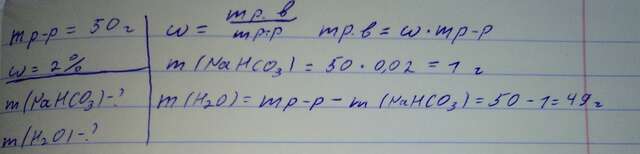 mр-р = 50 г
ω = 2%
m(NaHCO₃) - ?
m(H₂O) - ?
ω = mр.в / mр-р    mр.в = ω · mр-р
m(NaHCO₃) = 50 · 0,02 = 1 г
m(H₂O) = mр-р – m(NaHCO₃) = 50 - 1 = 49 г